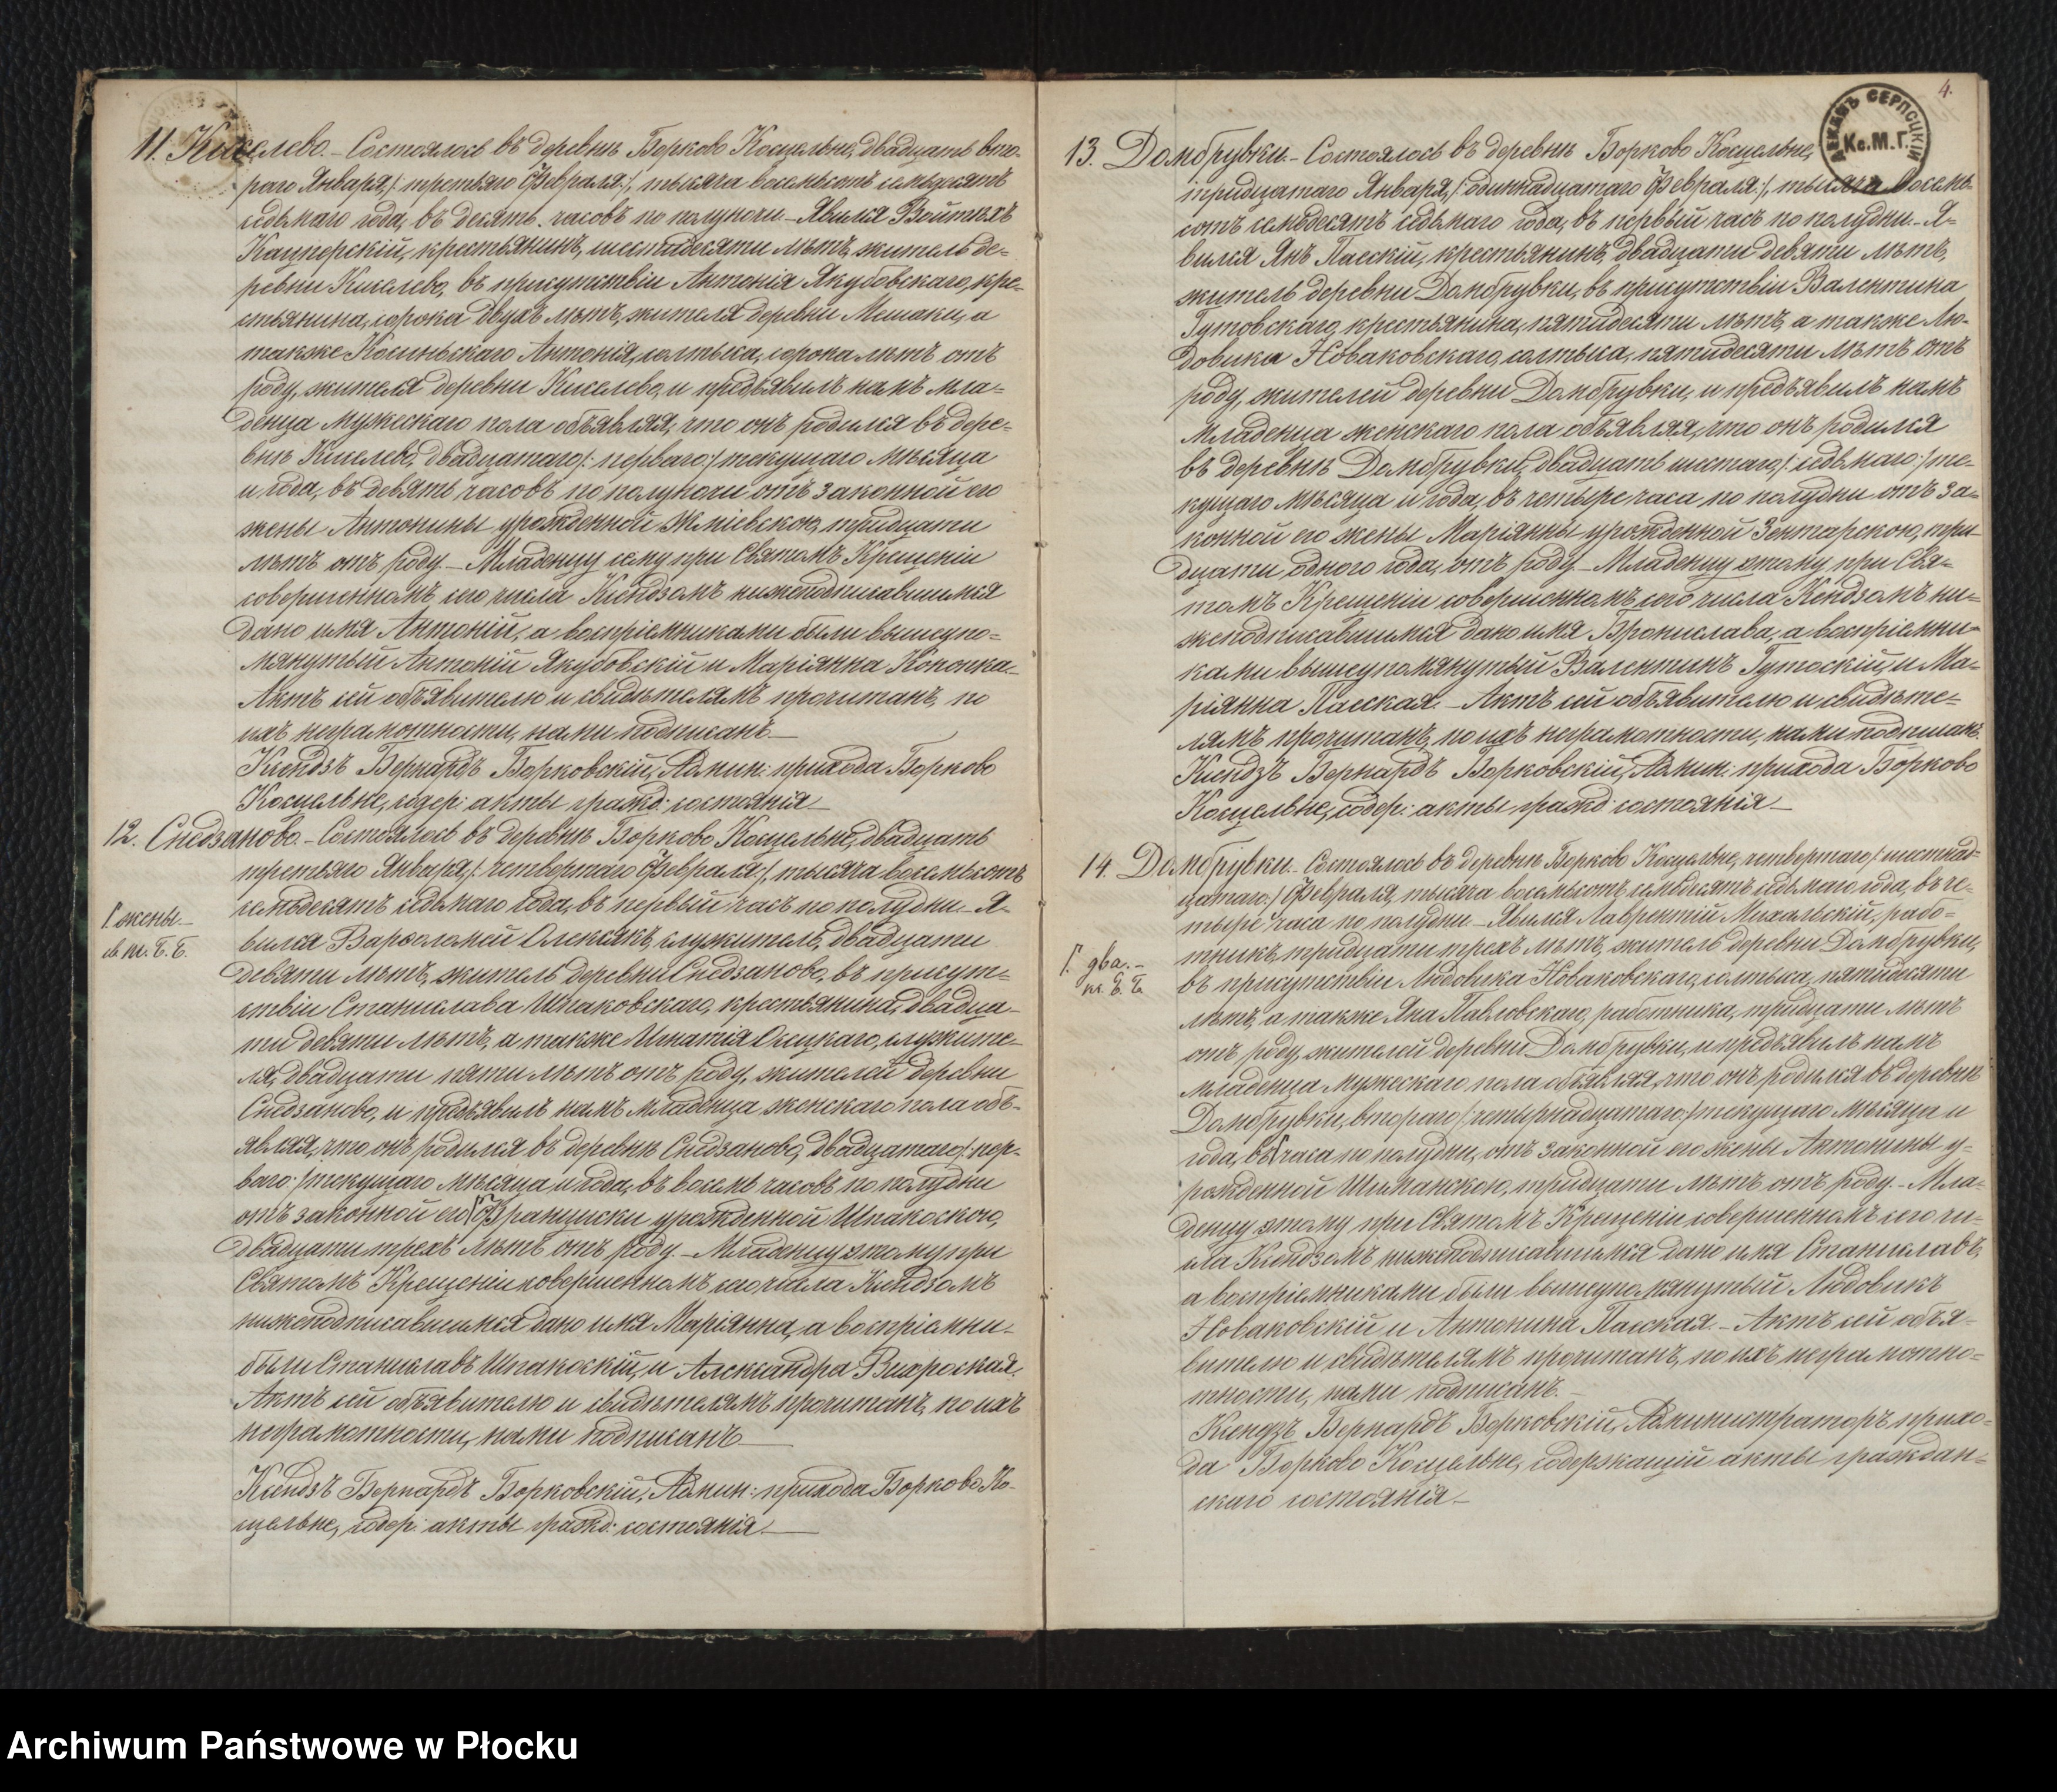 11. Киселево. – Состоялось въ деревнѣ Борково Косцельне, двадцать вто-
раго Января /: третьяго Февраля :/, тысяча восемьсотъ семьдесятъ
седьмаго года, въ десять часовъ по полуночи – Явился Войтѣхъ
Кацперскій, крестьянинъ, шестидесяти лѣтъ, житель де-
ревни Киселево, въ присутствіи Антонія Якубовскаго, кре-
стьянина, сорока двухъ лѣтъ, жителя деревни Мешаки, а
также Косиньскаго Антонія, солтыса, сорока лѣтъ отъ
роду, жителя деревни Киселево, и предъявилъ намъ мла-
денца мужескаго пола объявляя, что онъ родился въ дере-
внѣ Киселево, двадцатаго /: перваго :/ текущаго мѣсяца
и года, въ девять часовъ по полуночи отъ законной его
жены Антонины урожденной Жміевскою, тридцати
лѣтъ отъ роду. – Младенцу сему при Святомъ Крещеніи
совершенномъ сего числа Ксендзомъ нижеподписавшимся
дано имя Антоній, а воспріемниками были вышеупо-
мянутый Антоній Якубовскій и Маріянна Кононка. –
Актъ сей объявителю и свидѣтелямъ прочитанъ, по
ихъ неграмотности, нами подписанъ. –
Ксендзъ Бернардъ Борковскій, Админ: прихода Борково
Косцельне, содер: акты гражд: состоянія. –
12. Снедзаново. – Состоялось въ деревнѣ Борково Косцельне, двадцать
третьяго Января /: четвертаго Февраля :/, тысяча восемьсотъ
семьдесятъ седьмаго года, въ первый часъ по полудни. – Я-
Г. жены. –
вился Варфоломей Олексякъ, служитель, двадцати
кс. Б. Б.
девяти лѣтъ, житель деревни Снедзаново, въ присут-
ствіи Станислава Шпаковскаго, крестьянина, двадца-
ти девяти лѣтъ, а также Игнатія Осецкаго, служите-
ля, двадцати пяти лѣтъ отъ роду, жителей деревни
Снедзаново, и предъявилъ намъ младенца женскаго пола объ-
являя, что онъ родился въ деревнѣ Снедзаново, двадцатаго /: пер-
ваго :/ текущаго мѣсяца и года, въ восемь часовъ по полудни
отъ законной его Г Франциски урожденной Шпакоскою,
двадцати трехъ лѣтъ отъ роду. – Младенцу этому при
Святомъ Крещеніи совершенномъ сего числа Ксендзомъ
нижеподписавшимся дано имя Маріянна, а воспріемни-
были Станиславъ Шпакоскій, и Александра Виароская.
Актъ сей объявителю и свидѣтелямъ прочитанъ, по ихъ
неграмотности, нами подписанъ. –
Ксендзъ Бернардъ Борковскій, Админ: прихода Борково Ко-
сцельне, содер: акты гражд: состоянія. –
4.
ДЕКАНЪ СЕРПСЦКІЙ
Кс. М. Г.
13. Домбрувки. – Состоялось въ деревнѣ Борково Косцельне,
тридцатаго Января, /: одиннадцатаго Февраля :/, тысяча восемь-
сотъ семьдесятъ седьмаго года, въ первый часъ по полудни. – Я-
вился Янъ Паескій, крестьянинъ, двадцати девяти лѣтъ,
житель деревни Домбрувки, въ присутствіи Валентина
Гутовскаго, крестьянина, пятидесяти лѣтъ, а также Лю-
довика Новаковскаго, солтыса, пятидесяти лѣтъ отъ
роду, жителей деревни Домбрувки, и предъявилъ намъ
младенца женскаго пола объявляя, что онъ родился
въ деревнѣ Домбрувки, двадцать шестаго, /: седьмаго :/ те-
кущаго мѣсяца и года, въ четыре часа по полудни отъ за-
конной его жены Маріянны урожденной Зентарскою, три-
дцати одного года, отъ роду. – Младенцу этому, при Свя-
томъ Крещеніи совершенномъ сего числа Ксендзомъ ни-
жеподписавшимся дано имя Брониславa, а воспріемни-
ками вышеупомянутый Валентинъ Гутоскій, и Ма-
ріянна Паеская. – Актъ сей объявителю и свидѣте-
лямъ прочитанъ, по ихъ неграмотности, нами подписанъ.
Ксендзъ Бернардъ Борковскій, Админ: прихода Борково
Косцельне, содер: акты гражд: состоянія. –
14. Домбрувки. – Состоялось въ деревнѣ Борково Косцельне, четвертаго /: шестнад-
цатаго :/ Февраля, тысяча восемьсотъ семьдесятъ седьмаго года, въ че-
тыре часа по полудни. – Явился Лаврентій Михальскій, рабо-
тникъ, тридцати трехъ лѣтъ, житель деревни Домбрувки,
Г. два. –
въ присутствіи Людовика Новаковскаго, солтыса, пятидесяти
кс. Б. Б.
лѣтъ, а также Яна Павловскаго, работника, тридцати лѣтъ
отъ роду, жителей деревни Домбрувки, и предъявилъ намъ
младенца мужескаго пола объявляя, что онъ родился въ деревнѣ
Домбрувки, втораго /: четырнадцатаго :/ текущаго мѣсяца и
года, въ Г часа по полудни, отъ законной его жены Антонины у-
рожденной Шиманскою, тридцати лѣтъ отъ роду. – Мла-
денцу этому при Святомъ Крещеніи совершенномъ сего чи-
сла Ксендзомъ нижеподписавшимся дано имя Станиславъ,
а воспріемниками были вышеупомянутый Людовикъ
Новаковскій и Антонина Паеская. – Актъ сей объя-
вителю и свидѣтелямъ прочитанъ, по ихъ неграмотно-
тности, нами подписанъ. –
Ксендзъ Бернардъ Борковскій, Администраторъ прихо-
да Борково Косцельне, содержащій акты граждан-
скаго состоянія. –
Archiwum Państwowe w Płocku